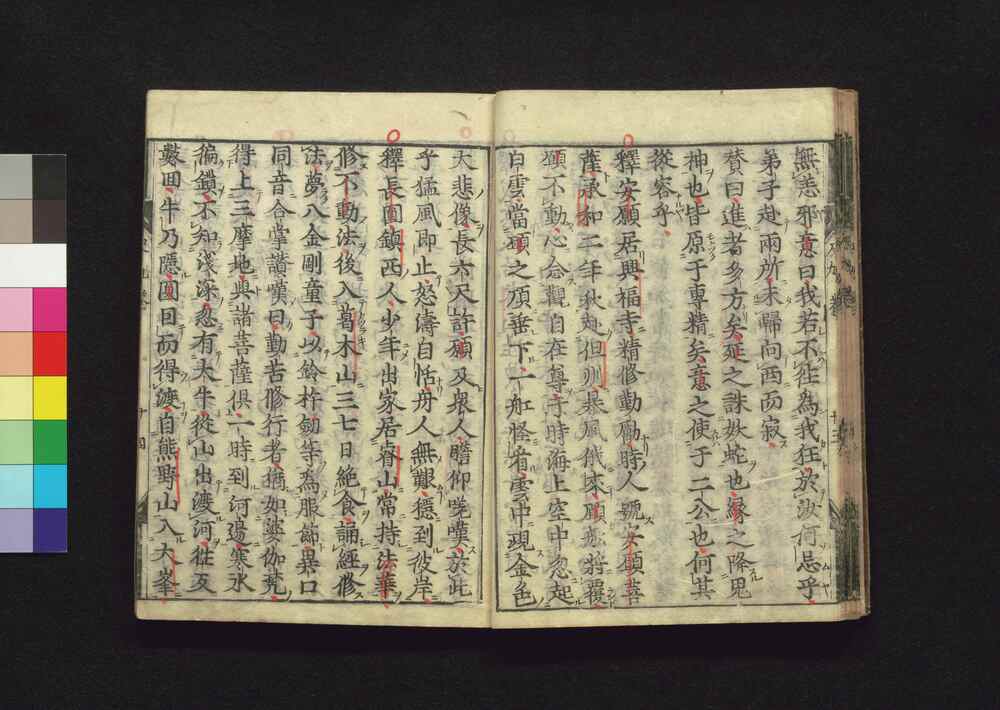 無恙邪意曰我若不往為我狂於汝何忌乎
弟子赴兩所未歸向西而寂
賛曰進者多方矣延之誅妖蛇也緣之降鬼
神也皆原于專精矣意之使于二公也何其
從容乎
釋安願居興福寺精修勤勵時人號安願菩
薩承和二年秋赴但州暴風俄來願舩將覆
願不動心念觀自在尊于時海上空中忽起
白雲當頭之頂垂下一舩怪看雲中現金色
大悲像長六尺許願及眾人瞻仰嗟嘆於此
乎猛風即止怒濤自恬舟人無艱穩到彼岸
釋長圓鎮西人少年出家居睿山常持法華
修不動法後入葛木山三七日絶食誦經修
法夢八金剛童子以鈴杵劔等為服飾異口
同音合掌讚嘆曰勤苦修行者猶如婆伽梵
得上三摩地與諸菩薩俱一時到河邊寒氷
徧鎖不知浅深忽有大牛從山出渡河徃反
數回牛乃隱圓因而得渡自熊野山入大峯